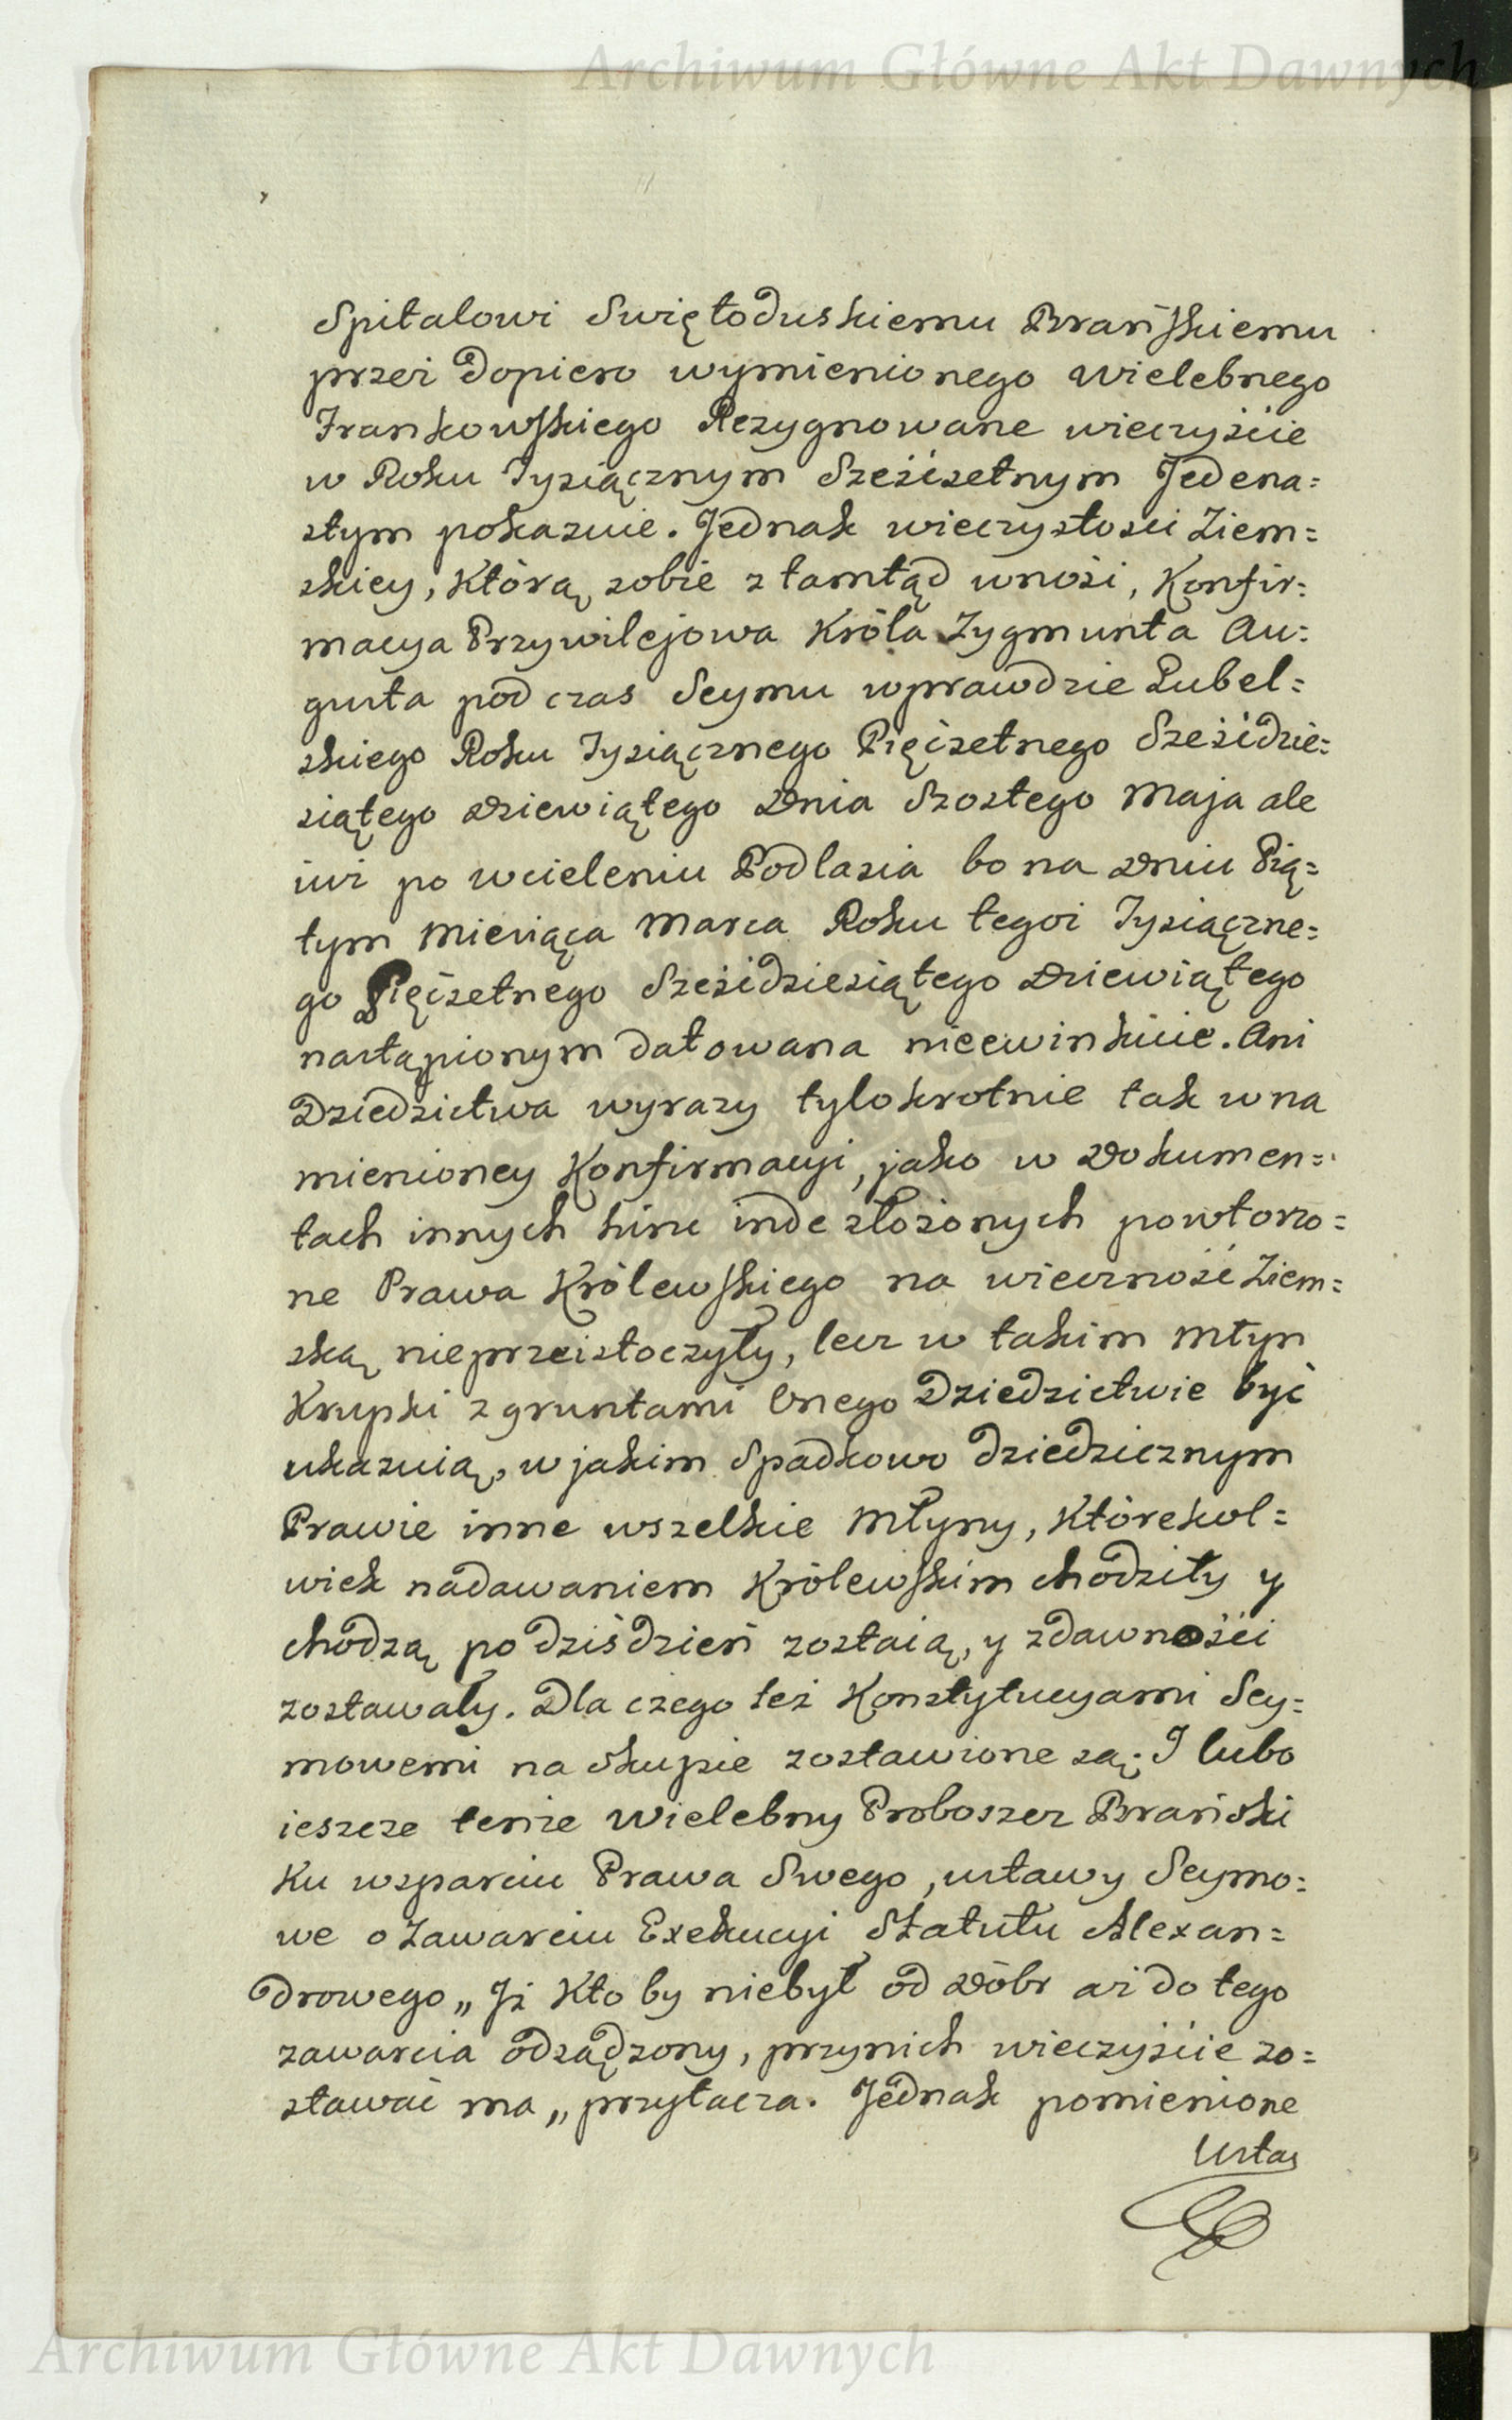 Archiwum Główne Akt Dawnych
Spitalowi Swiętoduskiemu Brańskiemu
przez dopiero wymienionego Wielebnego
Frankowskiego Rezygnowane wieczyście
w Roku Tysiącznym Sześćsetnym Jedena=
stym pokazuie. Jednak wieczystości Ziem=
skiey, Którą sobie z tamtąd wnosi, Konfir=
macya Przywilejowa Króla Zygmunta Au=
gusta podczas Seymu wprawdzie Lubel=
skiego Roku Tysiącznego Pięćsetnego Sześćdzie=
siątego Dziewiątego Dnia Szostego Maja ale
iuż po wcieleniu Podlasia bo na Dniu Pią=
tym Miesiąca Marca Roku tegoż Tysiączne=
go Pięćsetnego Sześćdziesiątego Dziewiątego
nastąpionym datowana nieewinkuie. Ani
Dziedzictwa wyrazy tylokrotnie tak w na
mienioney Konfirmacyi, jako w Dokumen=
tach innych hinc inde złożonych powtorzo=
ne Prawa Królewskiego na wieczność Ziem=
ską nieprzeistoczyły, lecz w takim Młyn
Krupki z gruntami Onego Dziedzictwie być
ukazuią, w jakim Spadkowo dziedzicznym
Prawie inne wszelkie Młyny, Którekol=
wiek nadawaniem Królewskim chodziły y
chodzą po dziśdzień zostaią, y zdawności
zostawały. Dla czego też Konstytucyami Sey=
mowemi na Skupie zostawione są; I lubo
ieszcze tenże Wielebny Proboszcz Brański
Ku wsparciu Prawa Swego, ustawy Seymo=
we o Zawarciu Exekucyi Statutu Alexan=
drowego „Iż Kto by niebył od Dóbr aż do tego
zawarcia odsądzony, przynich wieczyście zo=
stawać ma„ przytacza. Jednak pomienione
Ustaw
Archiwum Główne Akt Dawnych